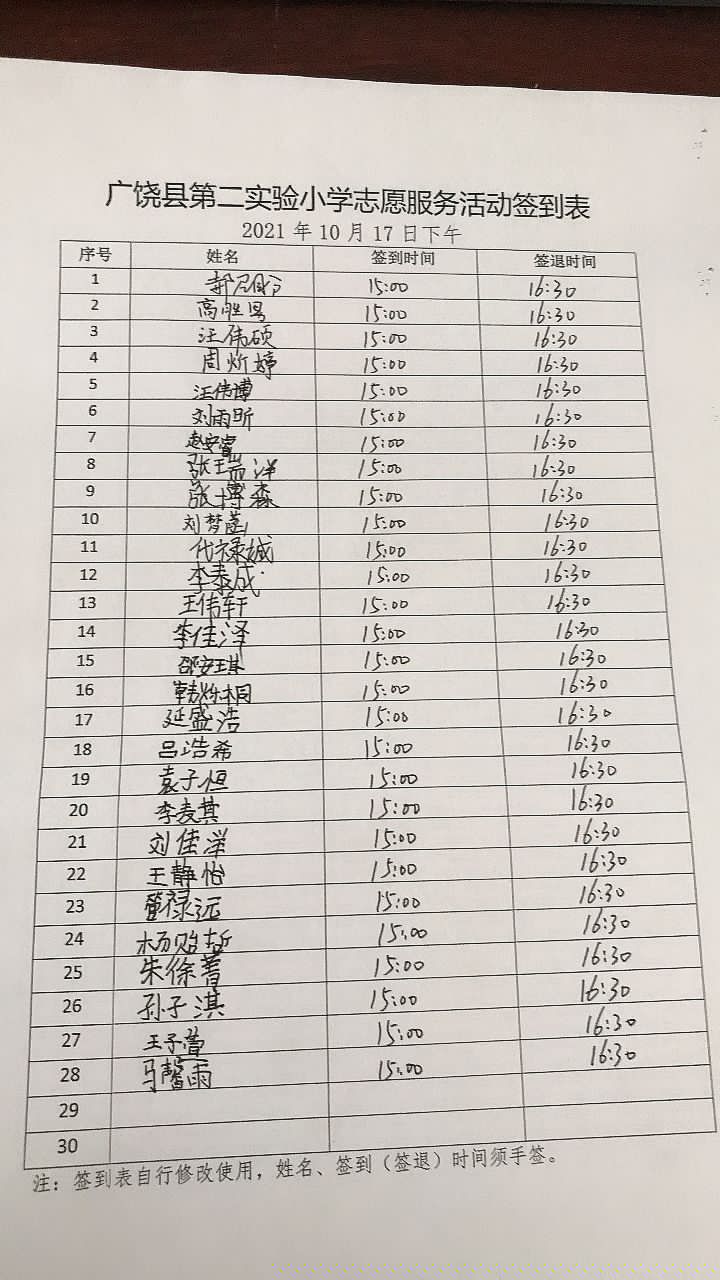 广饶县第二实验小学志愿服务活动签到表
2021 年 10 月 17 日下午
序号 姓名 签到时间 签退时间
1 15:00 16:30
2 高胜男 15:00 16:30
3 汪伟硕 15:00 16:30
4 周炘婷 15:00 16:30
5 汪伟博 15:00 16:30
6 刘雨昕 15:00 16:30
7 赵安富 15:00 16:30
8 张玉洋 15:00 16:30
9 张博森 15:00 16:30
10 刘梦 15:00 16:30
11 代禄城 15:00 16:30
12 李泰成 15:00 16:30
13 王伟轩 15:00 16:30
14 李佳泽 15:00 16:30
15 邵安琪 15:00 16:30
16 韩烁桐 15:00 16:30
17 延盛浩 15:00 16:30
18 吕浩希 15:00 16:30
19 袁子恒 15:00 16:30
20 李麦其 15:00 16:30
21 刘佳洋 15:00 16:30
22 王静怡 15:00 16:30
23 禄远 15:00 16:30
24 杨贻哲 15:00 16:30
25 朱徐菁 15:00 16:30
26 孙子淇 15:00 16:30
27 王子萱 15:00 16:30
28 马馨雨 15:00 16:30
29
30
注：签到表自行修改使用，姓名、签到（签退）时间须手签。